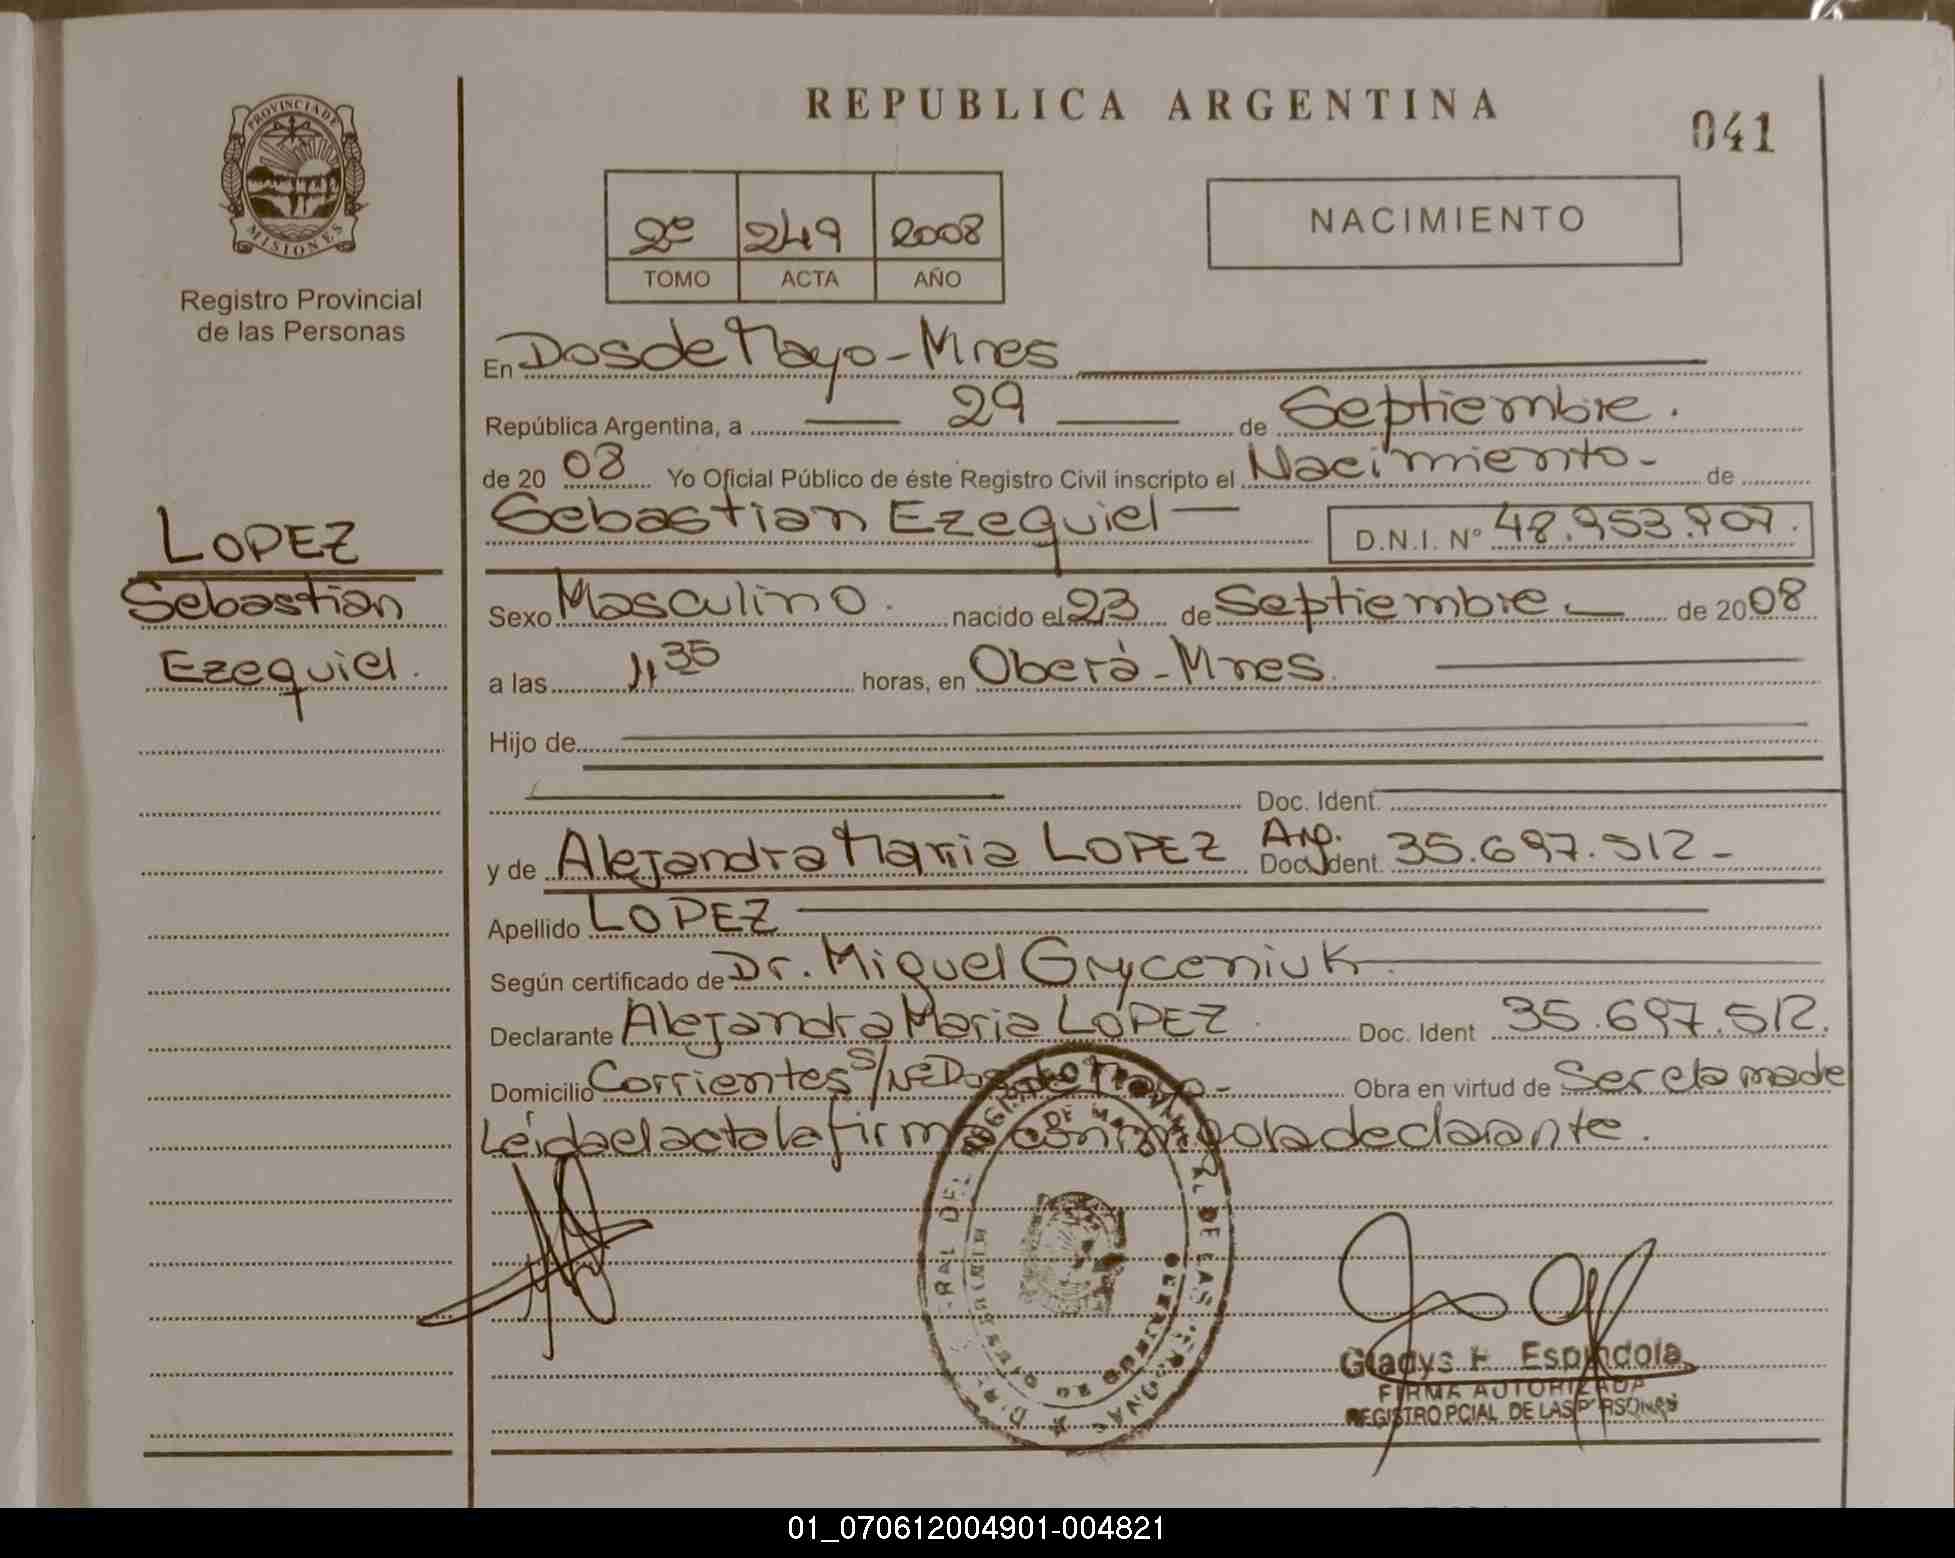 REPUBLICA ARGENTINA
041
PROVINCIA DE
MISIONES
Registro Provincial
de las Personas
2º 249 2008
TOMO ACTA AÑO
NACIMIENTO
En Dos de Mayo - Mnes
República Argentina, a 29 de Septiembre.
de 20 08 Yo Oficial Público de éste Registro Civil inscripto el Nacimiento - de
Sebastian Ezequiel — D.N.I. Nº 48.953.907.
LOPEZ
Sebastian
Ezequiel.
Sexo Masculino. nacido el 23 de Septiembre. — de 2008
a las 1,35 horas, en Oberá - Mnes.
Hijo de
Doc. Ident.
y de Alejandra Maria LOPEZ Arg. Doc. Ident. 35.697.512 -
Apellido LOPEZ
Según certificado de Dr. Miguel Gryceniuk.
Declarante Alejandra Maria LOPEZ. Doc. Ident 35.697.512.
Domicilio Corrientes S/Nº Dos de Mayo - Obra en virtud de Ser la madre
Leída el acta la firma conmigo la declarante.
Gladys H. Espindola
FIRMA AUTORIZADA
REGISTRO PCIAL DE LAS PERSONAS
01_070612004901-004821